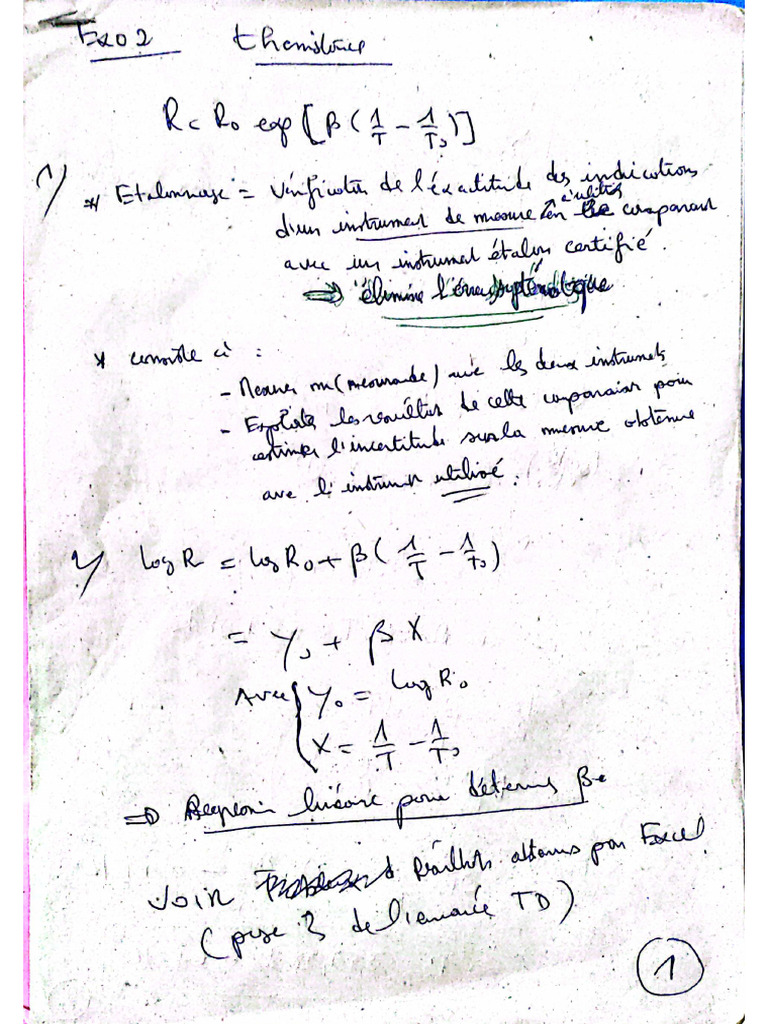 Exo 2 thermistance
R = R0 exp[β(1/T - 1/T0)]
1) * Etalonnage = vérification de l'exactitude des indications
d'un instrument de mesure en comparant
avec un instrument étalon certifié.
⇒ élimine l'erreur systématique
* consiste à :
- Mesurer m (mesurande) avec les deux instruments
- Exploiter les résultats de cette comparaison pour
estimer l'incertitude sur la mesure obtenue
avec l'instrument utilisé.
2) log R = log R0 + β(1/T - 1/T0)
= Y0 + β X
Avec { Y0 = log R0
X = 1/T - 1/T0
⇒ Regression linéaire pour déterminer β
Voir Résultats obtenus par Excel
(page 3 de l'énoncé TD)
1